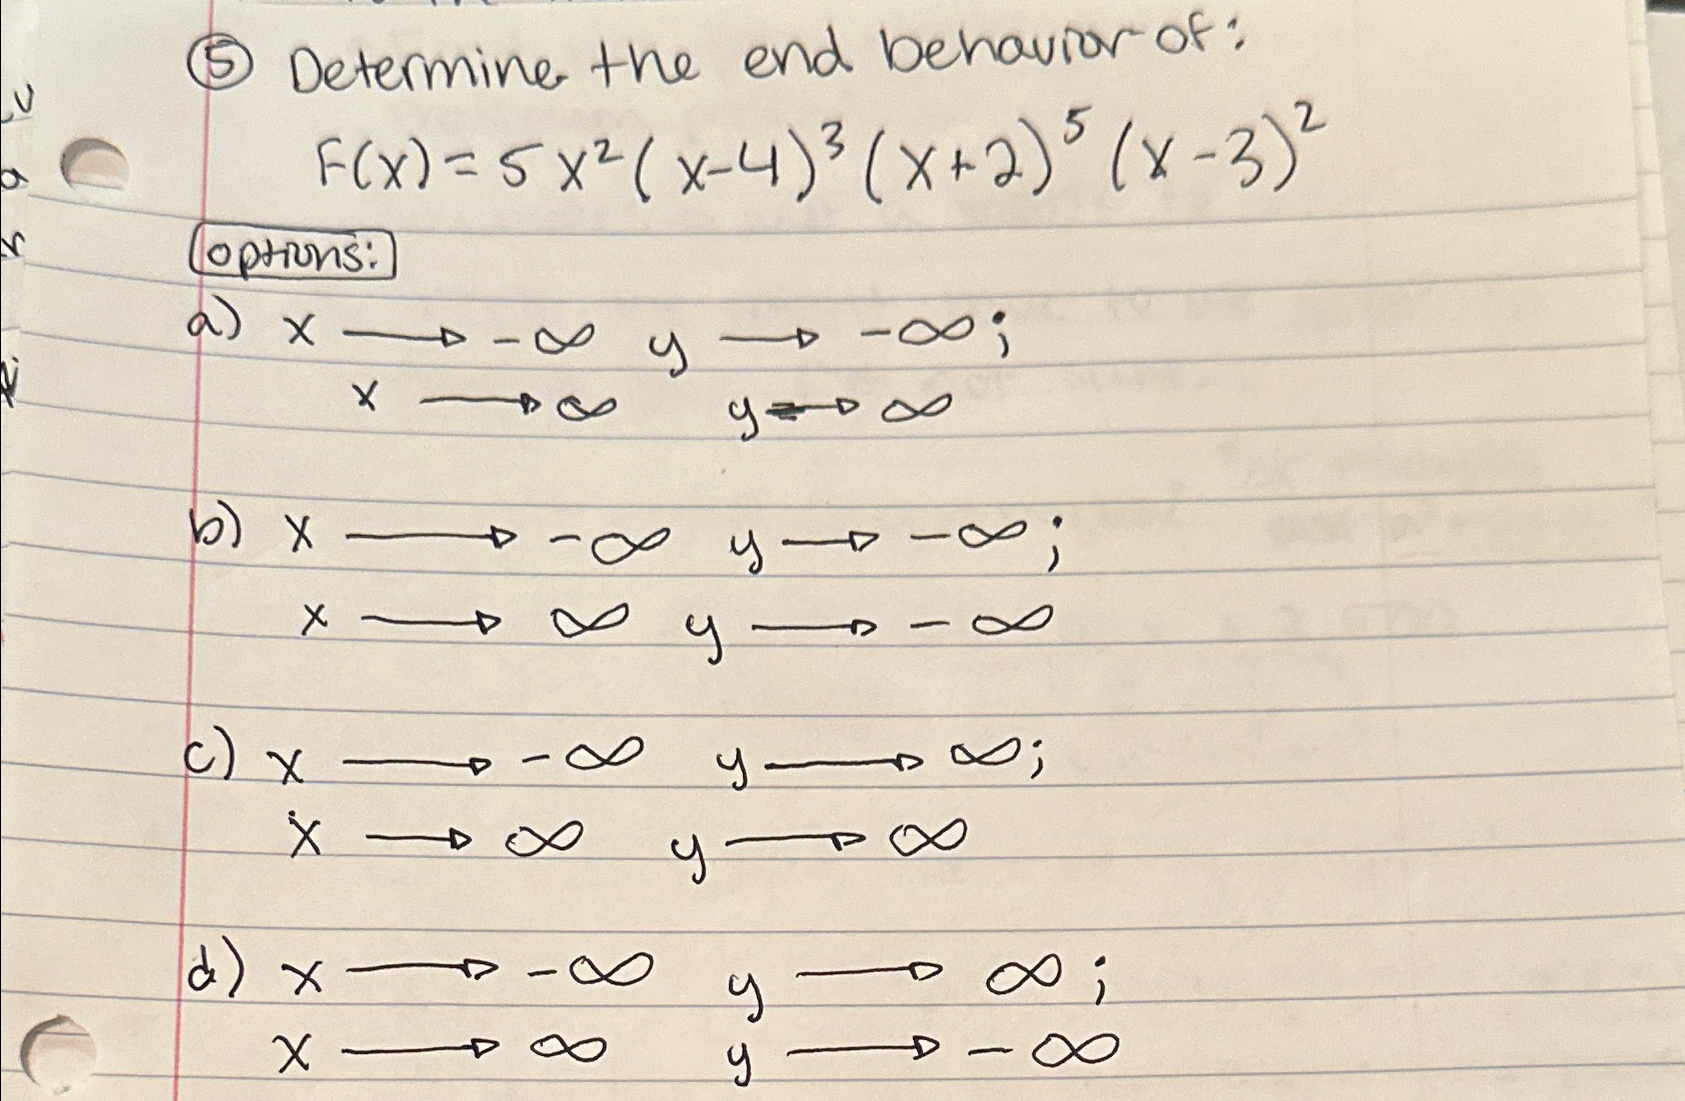 ⑤ Determine the end behavior of:
F(x) = 5x²(x-4)³(x+2)⁵(x-3)²
options:
a) x → -∞ y → -∞;
x → ∞ y → ∞
b) x → -∞ y → -∞;
x → ∞ y → -∞
c) x → -∞ y → ∞;
x → ∞ y → ∞
d) x → -∞ y → ∞;
x → ∞ y → -∞